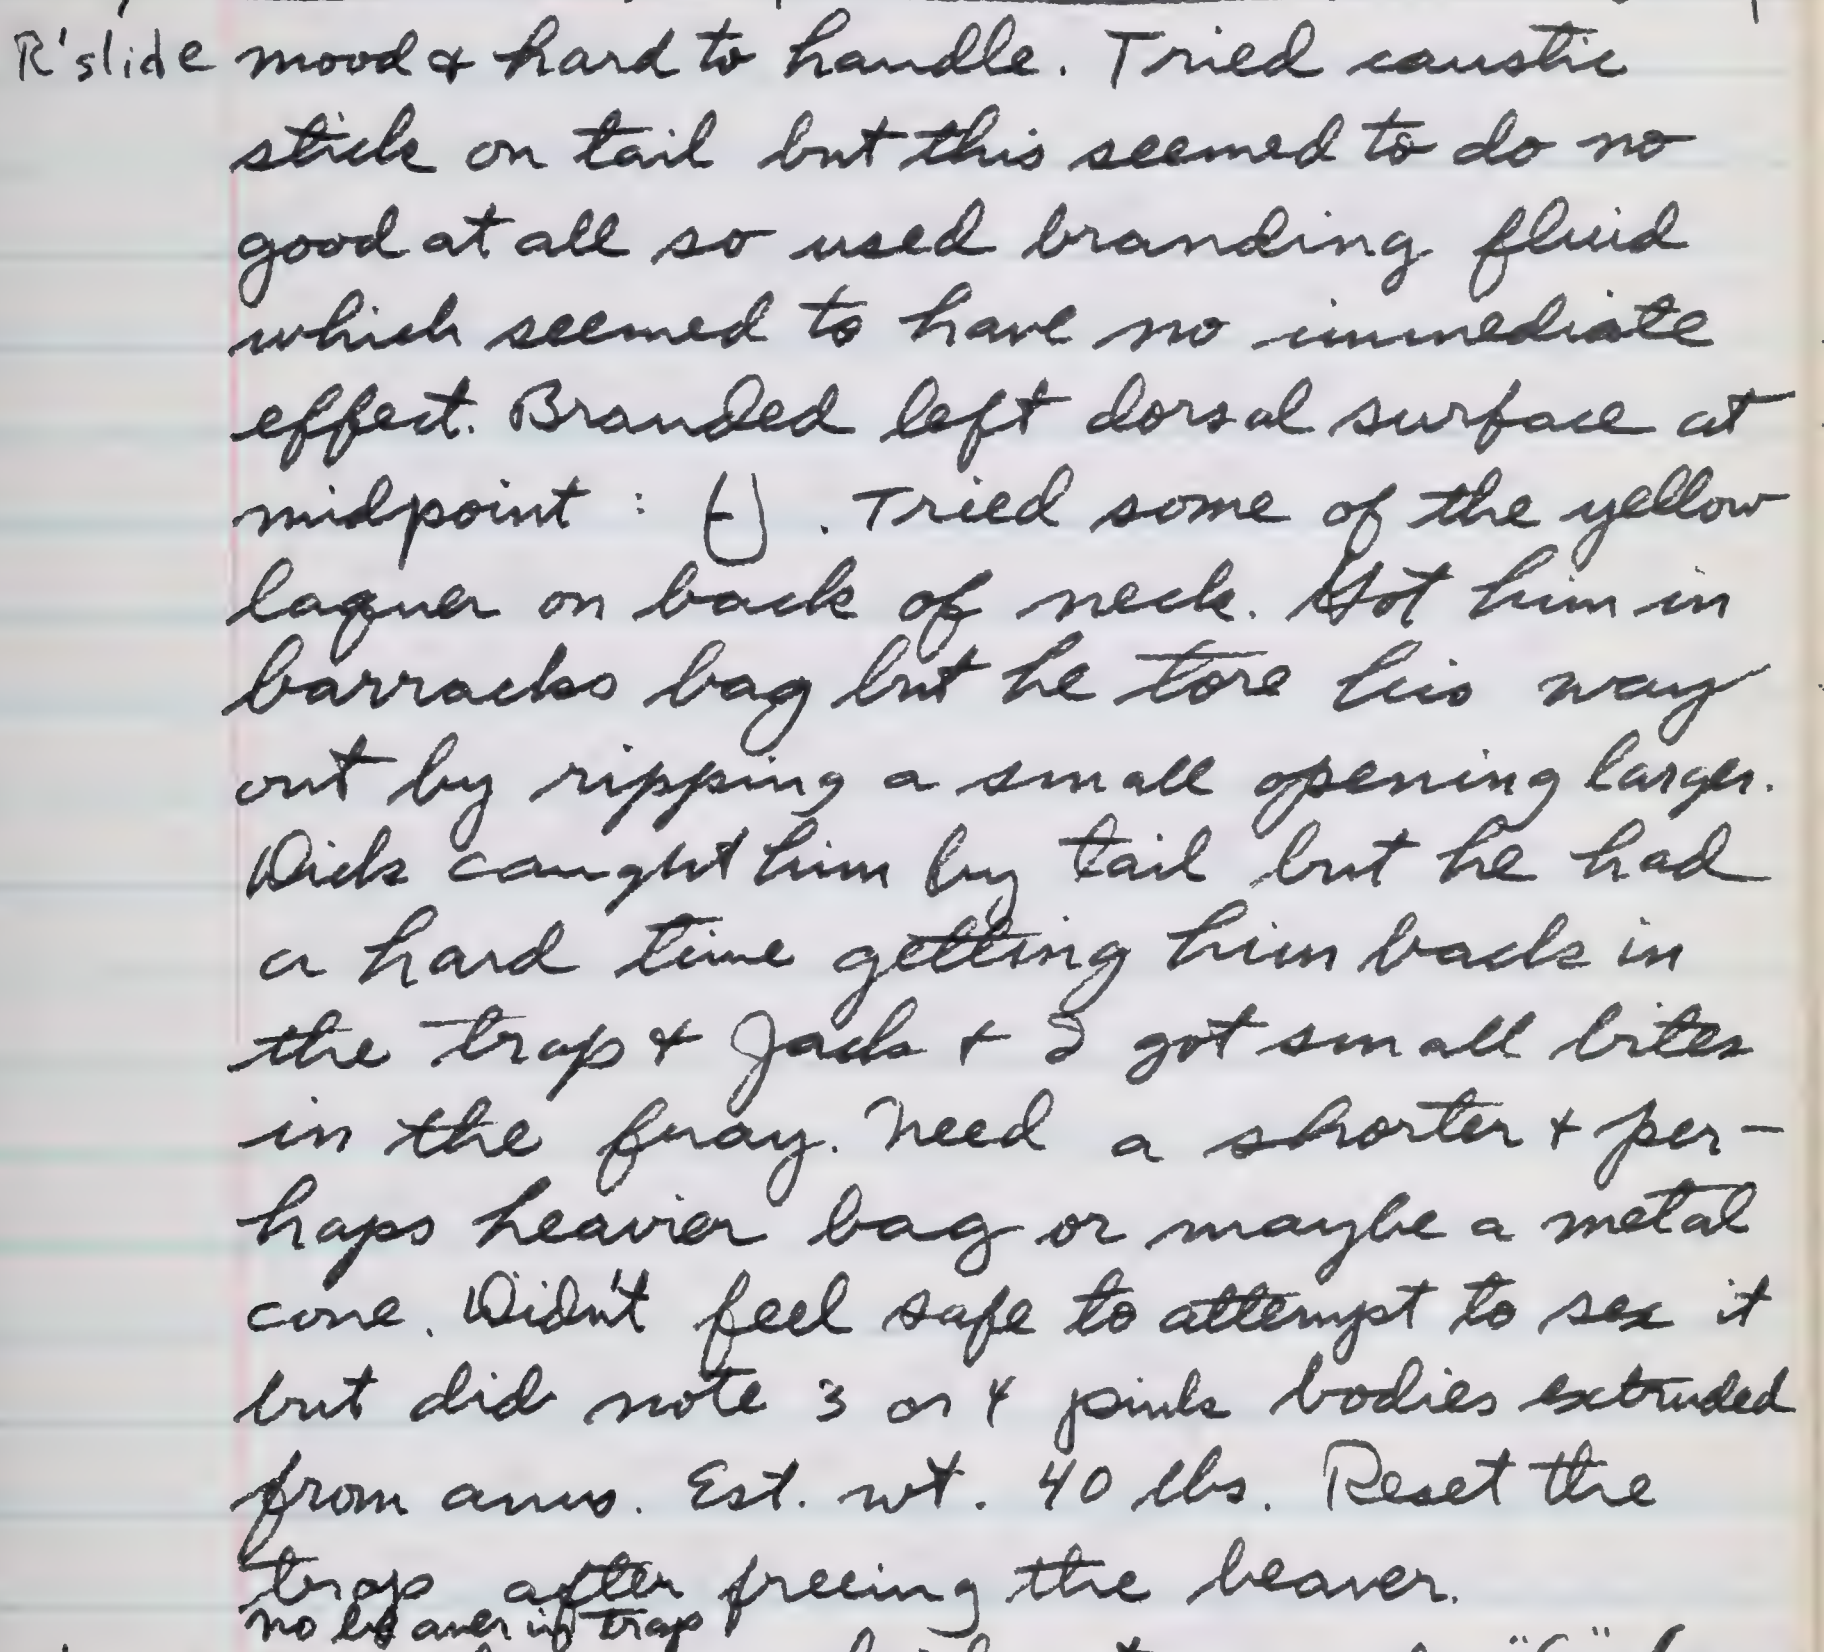 R'slide mood & hard to handle. Tried caustic
stick on tail but this seemed to do no
good at all so used branding fluid
which seemed to have no immediate
effect. Branded left dorsal surface at
midpoint : . Tried some of the yellow
laquer on back of neck. Got him in
barracks bag but he tore his way
out by ripping a small opening larger.
Dick caught him by tail but he had
a hard time getting him back in
the trap & Jack + I got small bites
in the fray. Need a shorter + per-
haps heavier bag or maybe a metal
cone. Didn't feel safe to attempt to sex it
but did note 3 or 4 pink bodies extruded
from anus. Est. wt. 40 lbs. Reset the
trap after freeing the beaver.
no beaver in trap